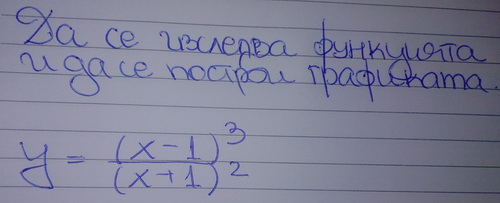 Да се изследва функцията
и да се построи графиката.
y = (x-1)^3 / (x+1)^2